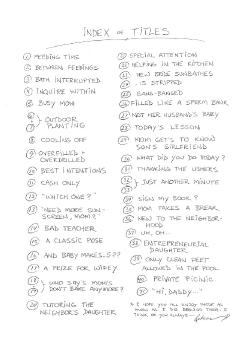 INDEX OF TITLES
1 FEEDING TIME
2 BETWEEN FEEDINGS
3 BATH INTERRUPTED
4 INQUIRE WITHIN
5 BUSY MOM
6 OUTDOOR
7 PLANTING
8 COOLING OFF
9 OVERFILLED +
OVERDRILLED
10 BEST INTENTIONS
11 CASH ONLY
12 "WHICH ONE?"
13 "NEED MORE SUN-
SCREEN, MOM?"
14 BAD TEACHER
15 A CLASSIC POSE
16 AND BABY MAKES..5??
17 A PRIZE FOR WIFEY
18 WHO SAY'S MOMS
19 DON'T BAKE ANYMORE?
20 TUTORING THE
NEIGHBOR'S DAUGHTER
21 SPECIAL ATTENTION
22 HELPING IN THE KITCHEN
NEW BRIDE SUNBATHES
.. IS STRIPPED
GANG-BANGED
FILLED LIKE A SPERM BANK
NOT HER HUSBAND'S BABY
TODAY'S LESSON
MOM GETS TO KNOW
SON'S GIRLFRIEND
WHAT DID YOU DO TODAY?
THANKING THE USHERS
JUST ANOTHER MINUTE
SIGN MY BOOK?
MOM TAKES A BREAK
NEW TO THE NEIGHBOR-
HOOD
37 UH, OH...
38 ENTREPRENEURIAL
DAUGHTER
39 ONLY CLEAN FEET
ALLOWED IN THE POOL
PRIVATE PICNIC
"HI, DADDY..."
I HOPE YOU ALL ENJOY THESE AS
MUCH AS I DID DRAWING THEM.
THANK YOU ALWAYS